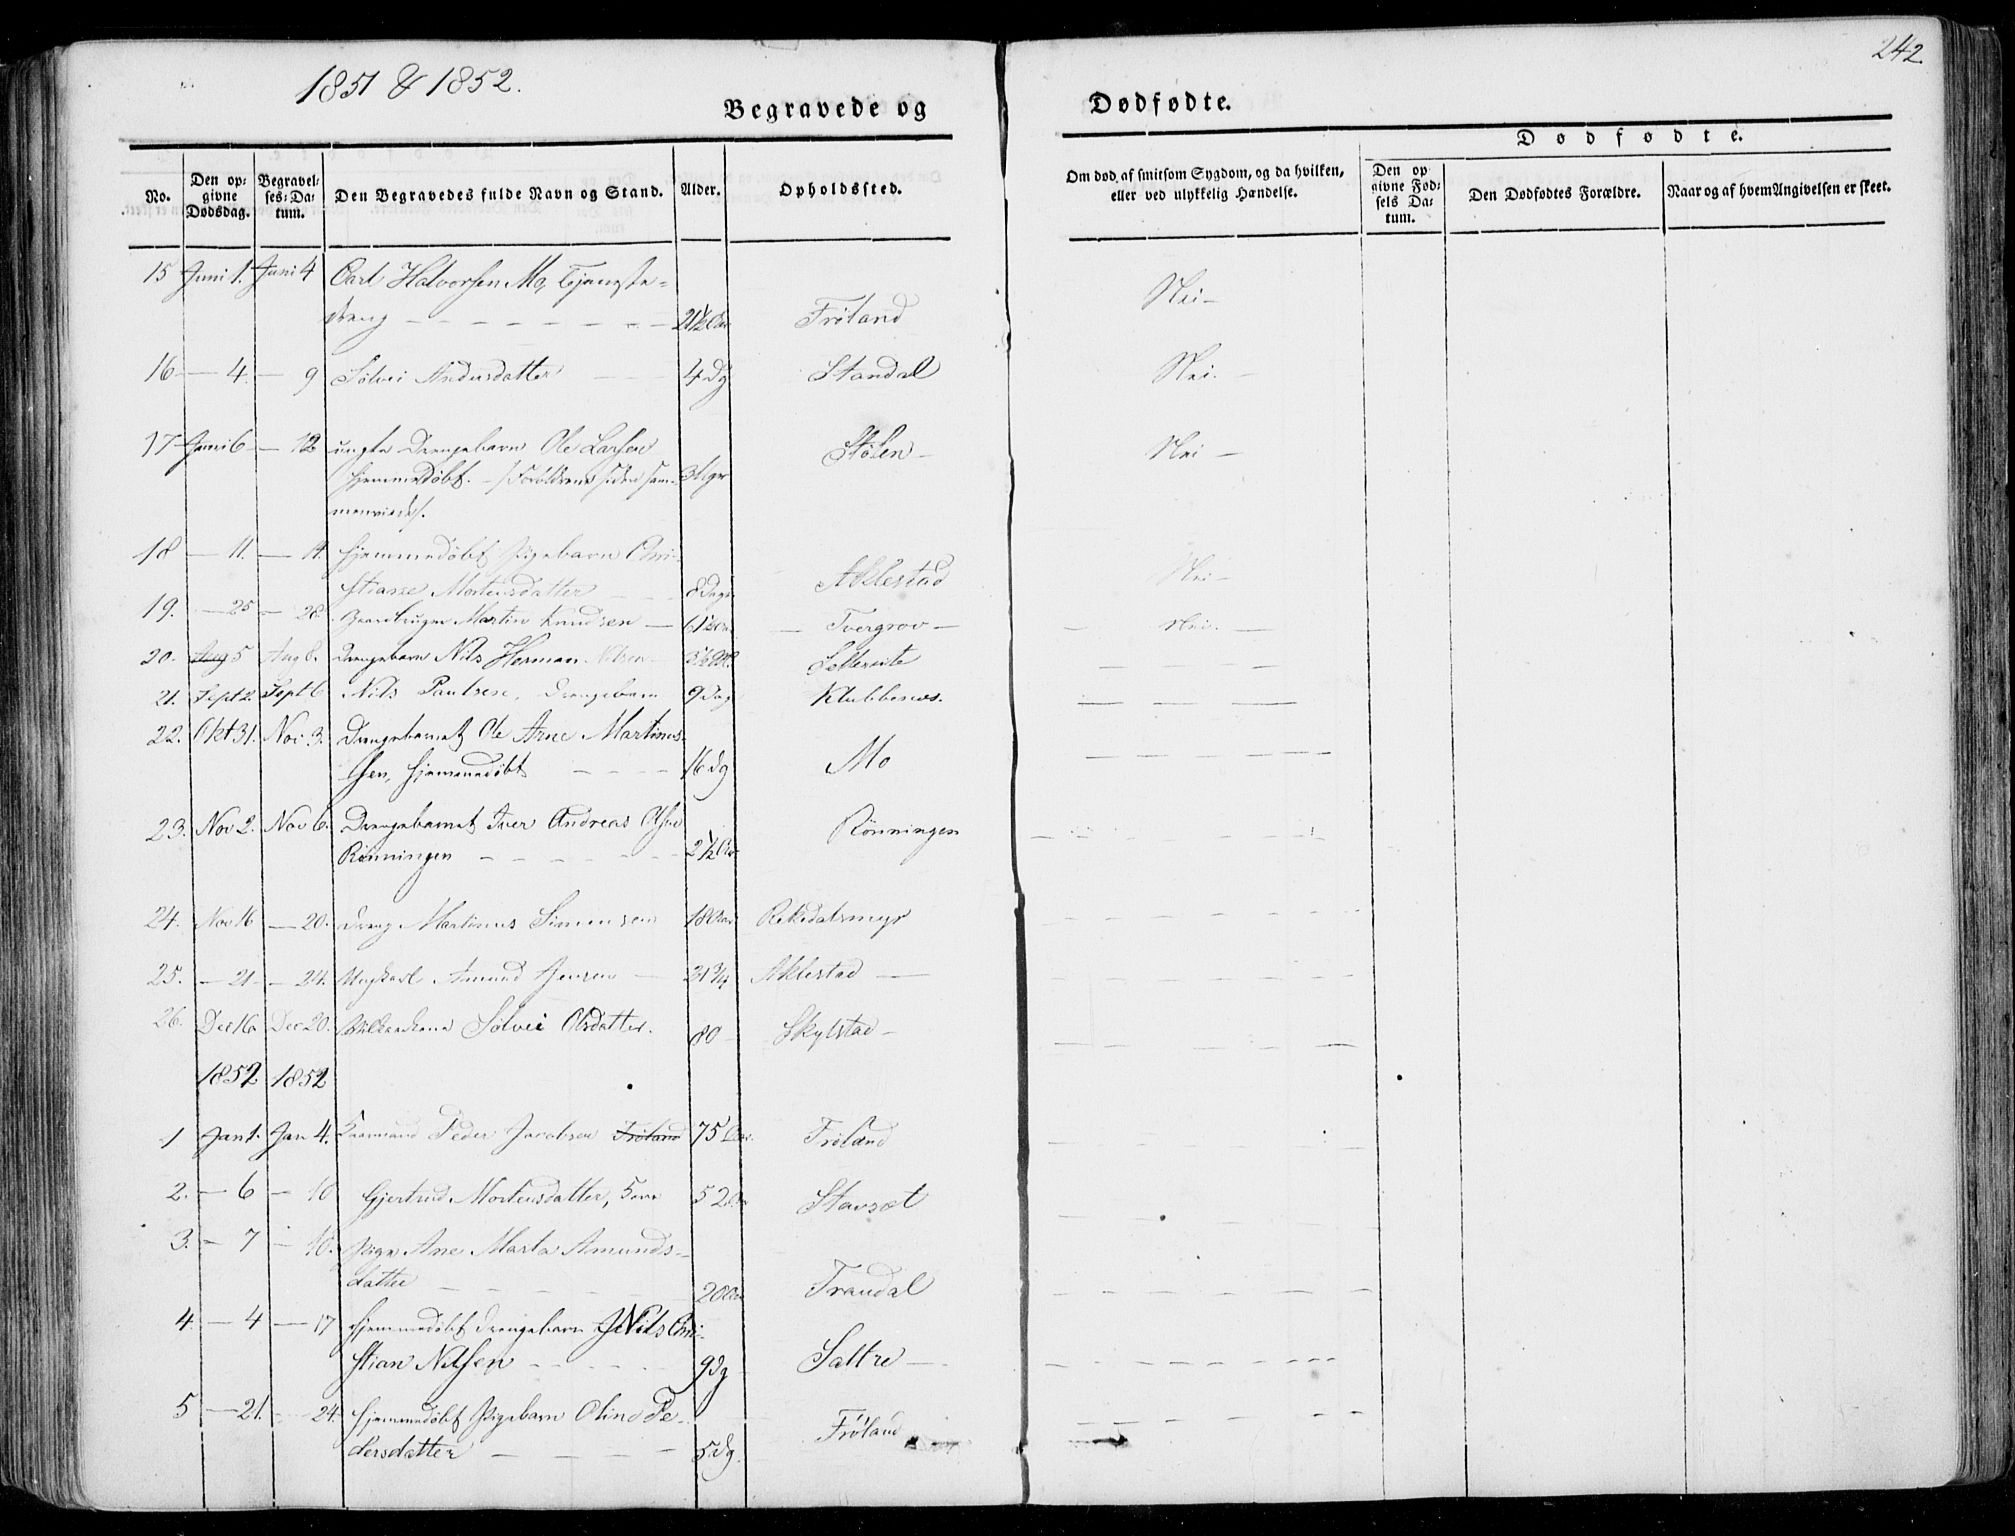 242.
1851 & 1852.
Begravede og Dødfødte.
Dødfødte.
No.
Den opgivne Dødsdag.
Begravelses-Datum.
Den Begravedes fulde Navn og Stand.
Alder.
Opholdssted.
Om død af smitsom Sygdom, og da hvilken, eller ved ulykkelig Hændelse.
Den opgivne Fødsels Datum.
Den Dødfødtes Forældre.
Naar og af hvem Angivelsen er skeet.
15 Juni 1. Juni 4 Carl Halvorsen Mo, Tjeneste-
dreng 21½ Aar Frøland Nei
16 4. 9 Sølvei Andersdatter 4 Dg Standal Nei.
17 Juni 6 12 uægte Drengebarn Ole Larsen
hjemmedøbt. Forældrene siden sam- 3 Støлen Nei
menviede.
18 11. 14. hjemmedøbt Pigebarn Chri-
stianne Mortensdatter 8 Dage Aklestad Nei
19. 25 28. Gaardbruger Martin Knudsen 61 Tvergrov Nei.
20. Aug 5 Aug 8. Drengebarn Nils Herman Nilsen Sætereite
21. Sept 2. Sept 6 Nils Paulsen, Drengebarn 9 Dag Klubbenes.
22. Okt 31. Nov 3. Drengebarnet Ole Arne Martinus-
sen, hjemmedøbt 16 dg Mo
23. Nov 2. Nov 6. Drengebarnet Iver Andreas Olsen
Rönningen 2½ Aar Rönningen
24. Nov 16 20. Dreng Martinus Simensen 18 Aar Rekkedalsmyr
25. 21 24. Ungkarl Amund Jensen 21¾ Aklestad
26. Dec 16 Dec 20. Sølvei Olsdatter. 80 Skylstad
1852 1852
1 Jan 1. Jan 4. Kaarmand Peder Jacobsen Frøland 75 Aar. Frøland
2. 6 10 Gjertrud Mortensdatter, 52 Aar Stavset
3. 7 10. Pige Ane Marta Amunds-
datter 20 Aar Trandal
4. 4 17 hjemmedøbt Drengebarn Nils Chri-
stian Nilsen 9 dg Sætre
5 21. 24. hjemmedøbt Pigebarn Oline Pe-
dersdatter 5 dg. Frøland